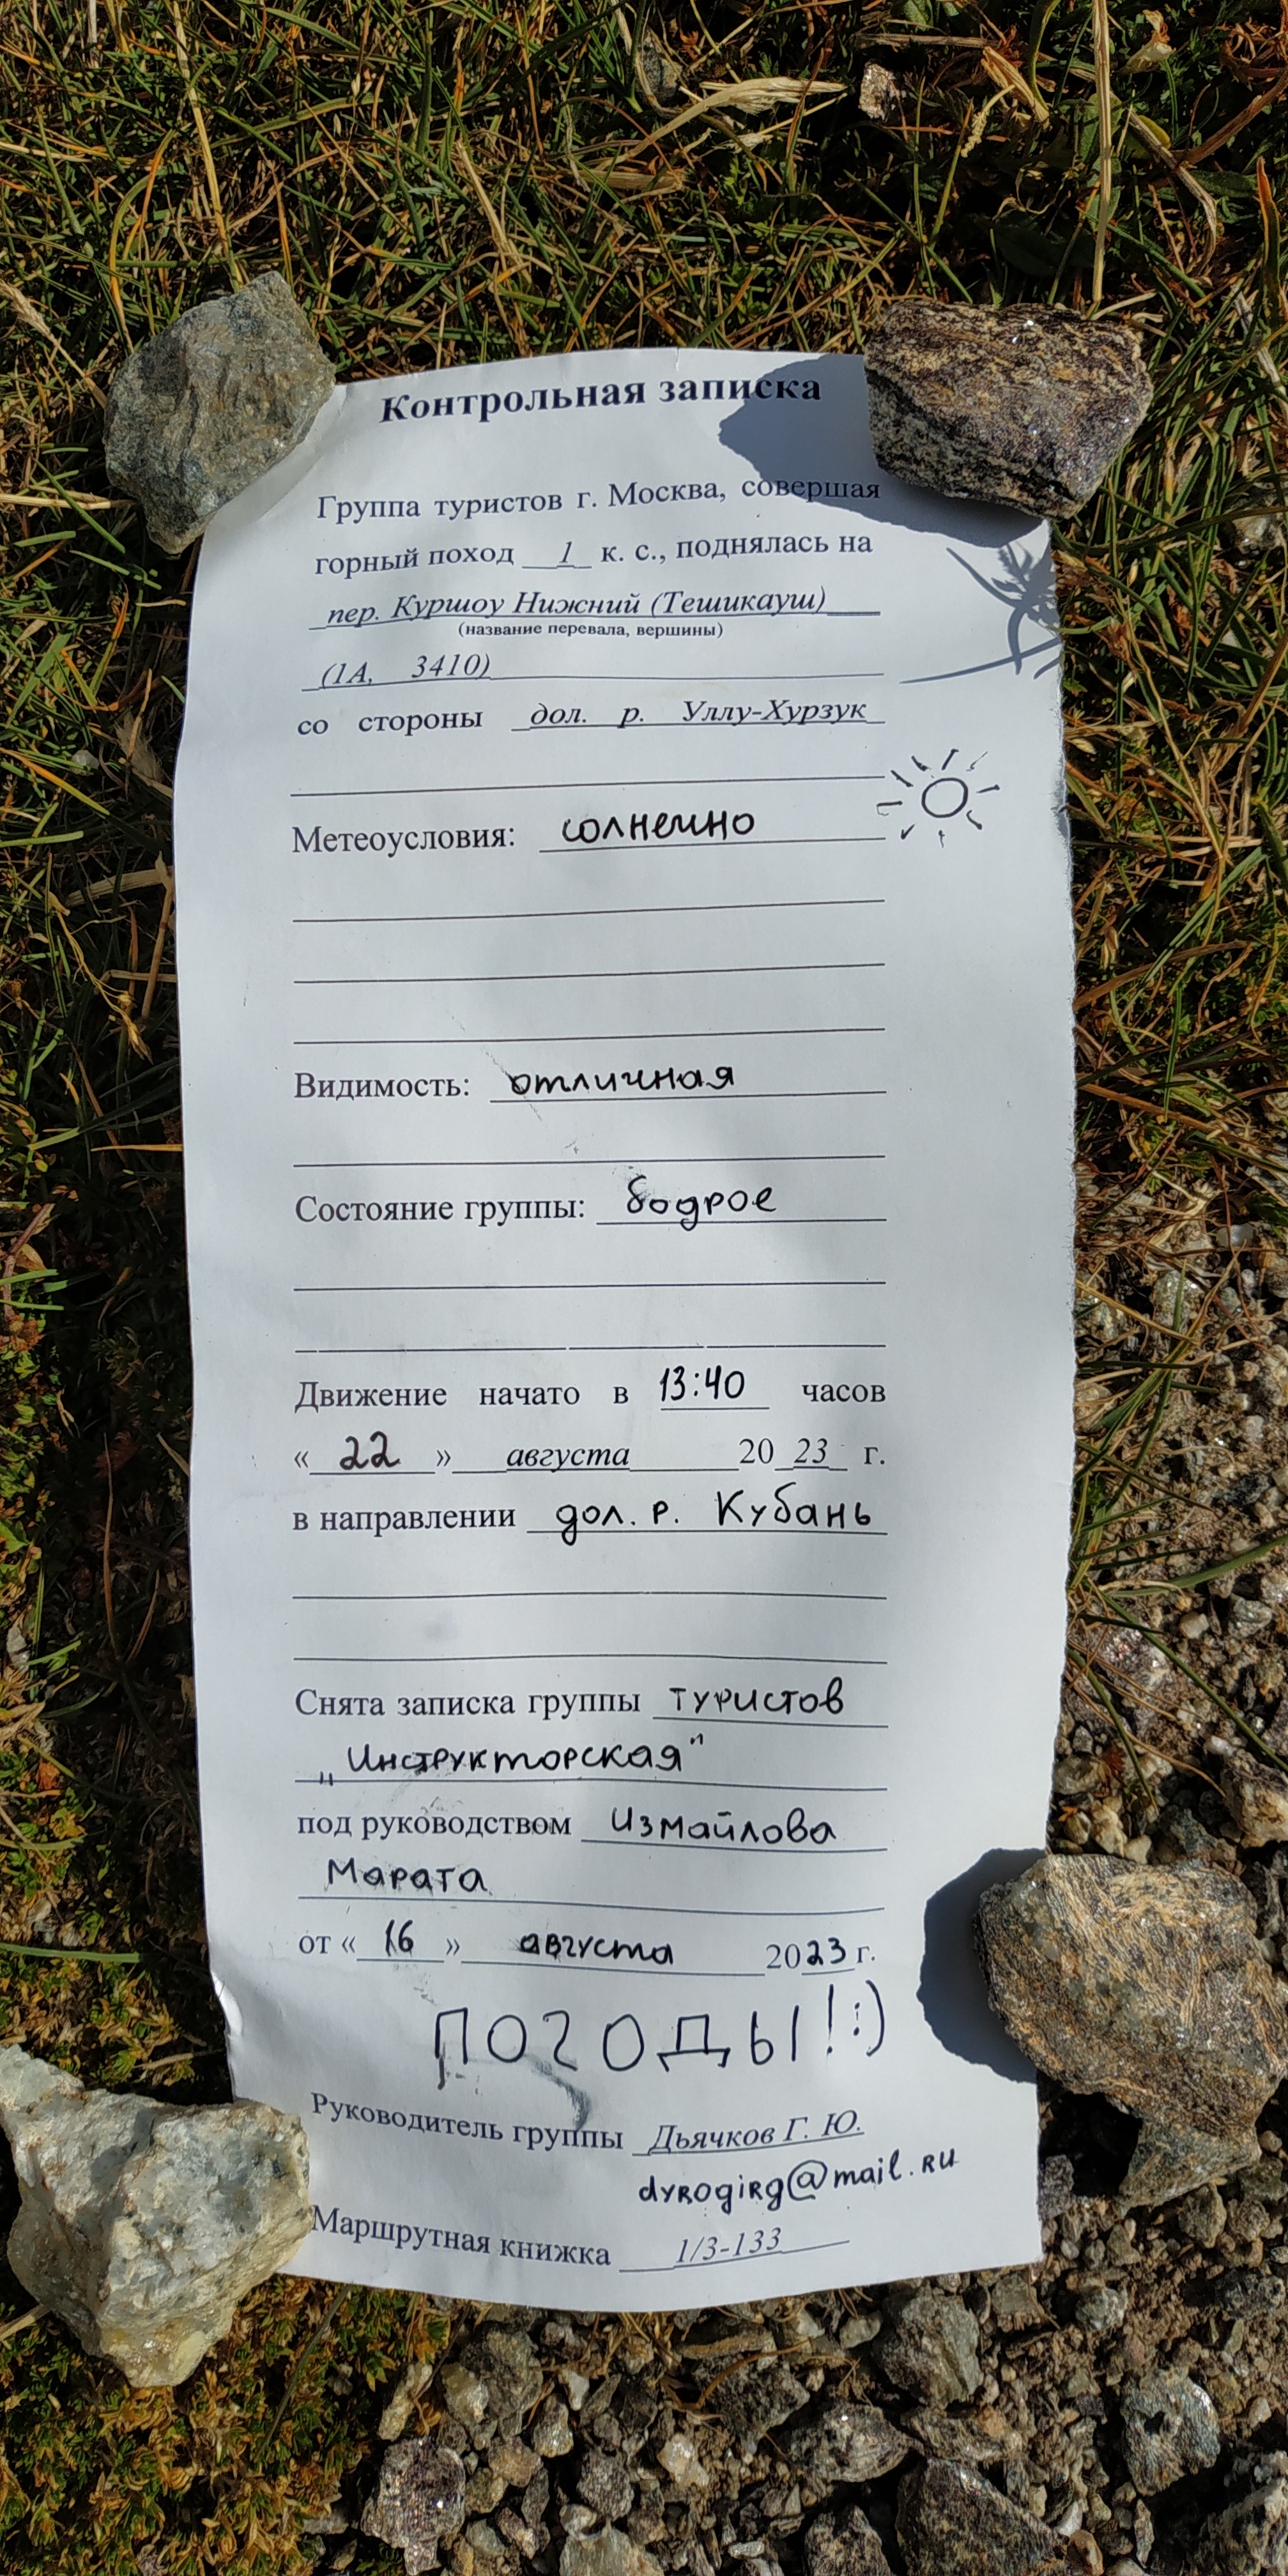 Контрольная записка
Группа туристов г. Москва, совершая
горный поход 1 к. с., поднялась на
пер. Куршоу Нижний (Тешикауш)
(название перевала, вершины)
(1А, 3410)
со стороны дол. р. Уллу-Хурзук
Метеоусловия: солнечно
Видимость: отличная
Состояние группы: бодрое
Движение начато в 13:40 часов
« 22 » августа 20 23 г.
в направлении дол. р. Кубань
Снята записка группы туристов
„Инструкторская"
под руководством Измайлова
Марата
от « 16 » августа 2023 г.
ПОГОДЫ! :)
Руководитель группы Дьячков Г. Ю.
dyrogirg@mail.ru
Маршрутная книжка 1/3-133